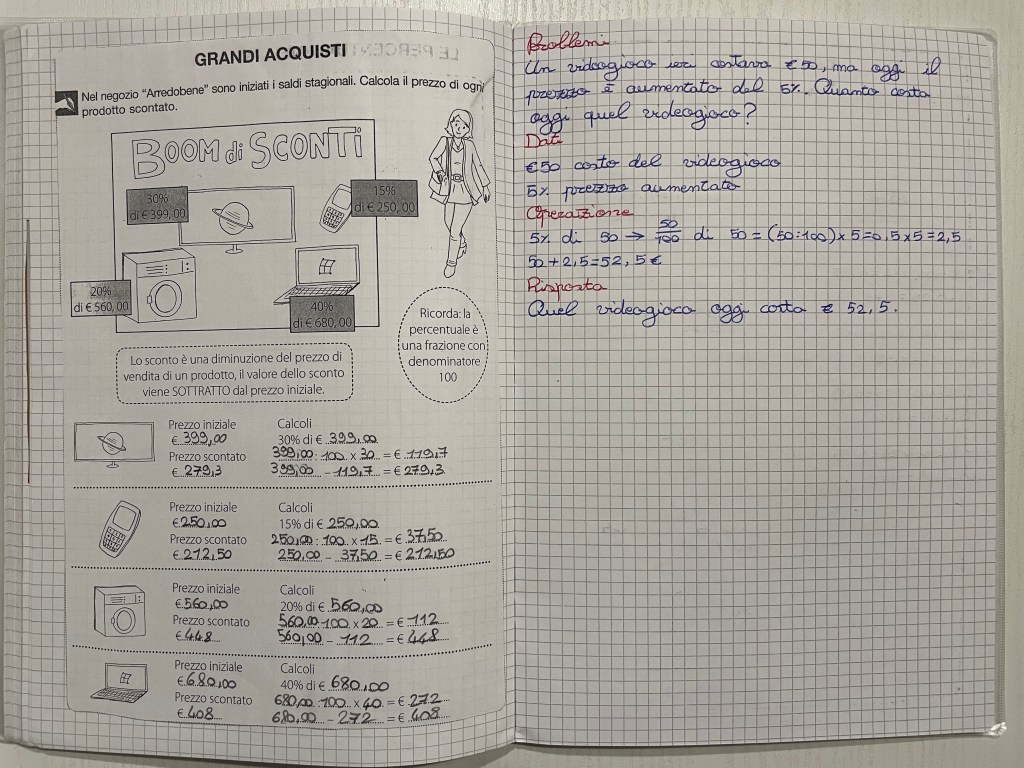 GRANDI ACQUISTI
Nel negozio "Arredobene" sono iniziati i saldi stagionali. Calcola il prezzo di ogni
prodotto scontato.
BOOM di SCONTI
30%
di € 399,00
15%
di € 250,00
20%
di € 560,00
40%
di € 680,00
Ricorda: la
percentuale è
una frazione con
denominatore
100
Lo sconto è una diminuzione del prezzo di
vendita di un prodotto, il valore dello sconto
viene SOTTRATTO dal prezzo iniziale.
Prezzo iniziale
€ 399,00
Prezzo scontato
€ 279,3
Calcoli
30% di € 399,00
399,00 : 100 x 30 = € 119,7
399,00 - 119,7 = € 279,3
Prezzo iniziale
€ 250,00
Prezzo scontato
€ 212,50
Calcoli
15% di € 250,00
250,00 : 100 x 15 = € 37,50
250,00 - 37,50 = € 212,50
Prezzo iniziale
€ 560,00
Prezzo scontato
€ 448
Calcoli
20% di € 560,00
560,00 : 100 x 20 = € 112
560,00 - 112 = € 448
Prezzo iniziale
€ 680,00
Prezzo scontato
€ 408
Calcoli
40% di € 680,00
680,00 : 100 x 40 = € 272
680,00 - 272 = € 408
Problemi
Un videogioco ieri costava € 50, ma oggi il
prezzo è aumentato del 5%. Quanto costa
oggi quel videogioco?
Dati
€ 50 costo del videogioco
5% prezzo aumentato
Operazione
5% di 50 → 50/100 di 50 = (50:100) x 5 = 0,5 x 5 = 2,5
50 + 2,5 = 52,5 €
Risposta
Quel videogioco oggi costa € 52,5.